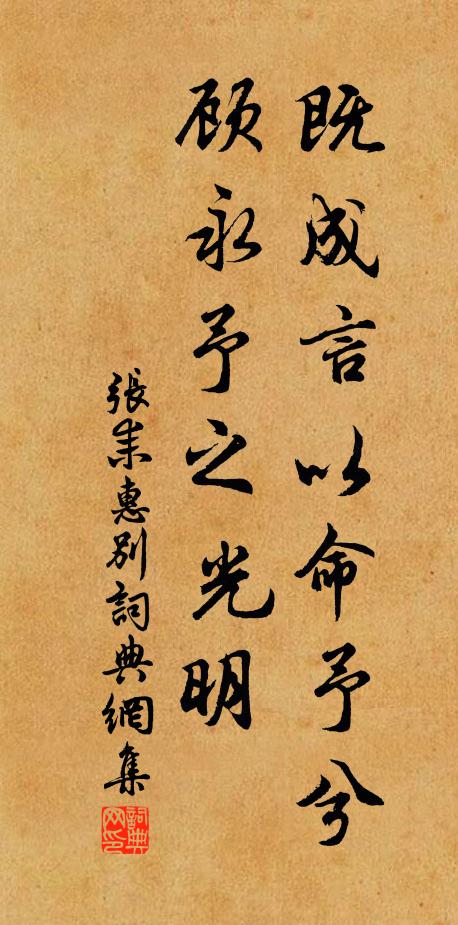 既成言以命予兮
顾永予之光明
張耒惠别詞典網集
詞典网印